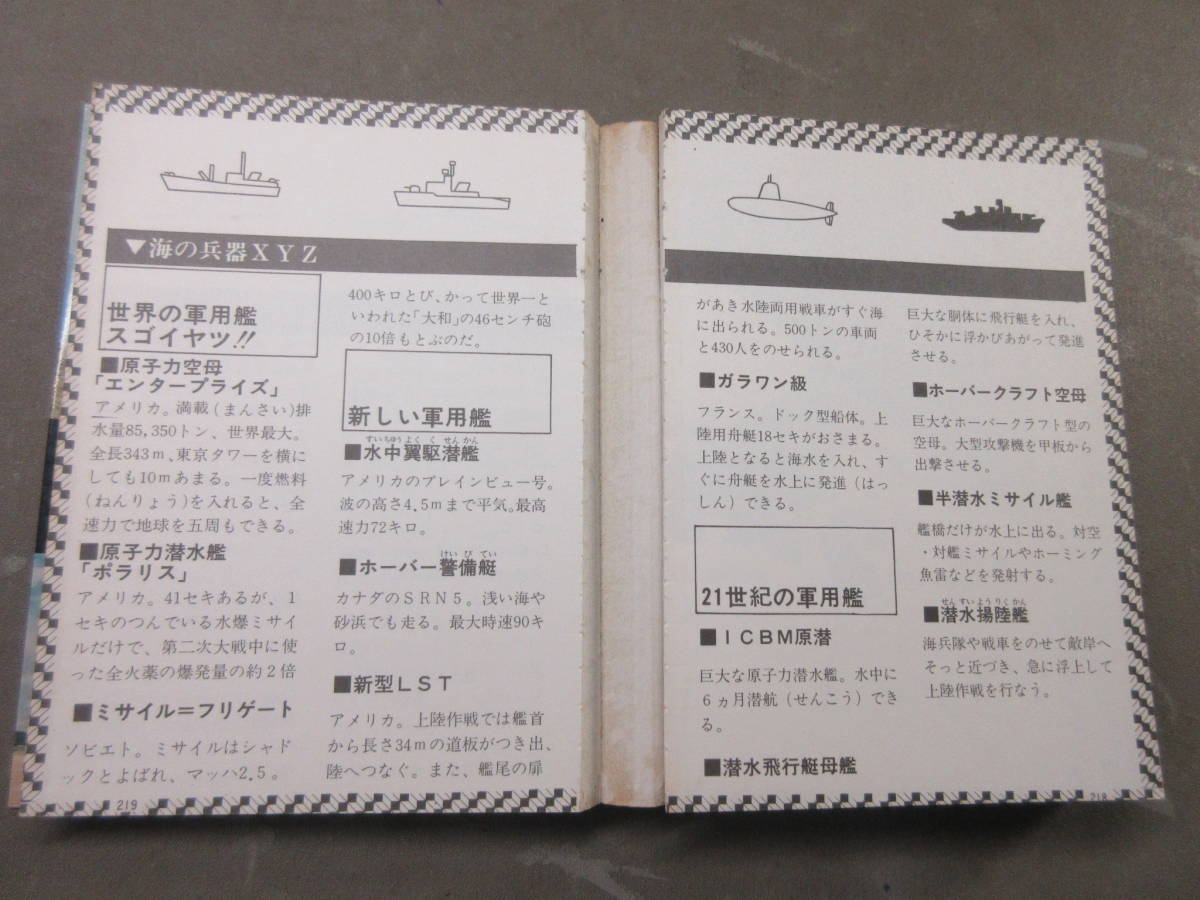 ▼海の兵器XYZ
世界の軍用艦
スゴイヤツ!!
■原子力空母
「エンタープライズ」
アメリカ。満載(まんさい)排
水量85,350トン、世界最大。
全長343m、東京タワーを横に
しても10mあまる。一度燃料
(ねんりょう)を入れると、全
速力で地球を五周もできる。
■原子力潜水艦
「ポラリス」
アメリカ。41セキあるが、1
セキのつんでいる水爆ミサイ
ルだけで、第二次大戦中に使
った全火薬の爆発量の約2倍
■ミサイル=フリゲート
ソビエト。ミサイルはシャド
ックとよばれ、マッハ2.5。
400キロとび、かって世界一と
いわれた「大和」の46センチ砲
の10倍もとぶのだ。
新しい軍用艦
すいちゅうよくくせんかん
■水中翼駆潜艦
アメリカのプレインビュー号。
波の高さ4.5mまで平気。最高
速力72キロ。
けいびてい
■ホーバー警備艇
カナダのSRN5。浅い海や
砂浜でも走る。最大時速90キ
ロ。
■新型LST
アメリカ。上陸作戦では艦首
から長さ34mの道板がつき出、
陸へつなぐ。また、艦尾の扉
219
があき水陸両用戦車がすぐ海
に出られる。500トンの車両
と430人をのせられる。
■ガラワン級
フランス。ドック型船体。上
陸用舟艇18セキがおさまる。
上陸となると海水を入れ、す
ぐに舟艇を水上に発進(はっ
しん)できる。
21世紀の軍用艦
■ICBM原潜
巨大な原子力潜水艦。水中に
6ヵ月潜航(せんこう)でき
る。
■潜水飛行艇母艦
巨大な胴体に飛行艇を入れ、
ひそかに浮かびあがって発進
させる。
■ホーバークラフト空母
巨大なホーバークラフト型の
空母。大型攻撃機を甲板から
出撃させる。
■半潜水ミサイル艦
艦橋だけが水上に出る。対空
・対艦ミサイルやホーミング
魚雷などを発射する。
せんすいようりくかん
■潜水揚陸艦
海兵隊や戦車をのせて敵岸へ
そっと近づき、急に浮上して
上陸作戦を行なう。
218